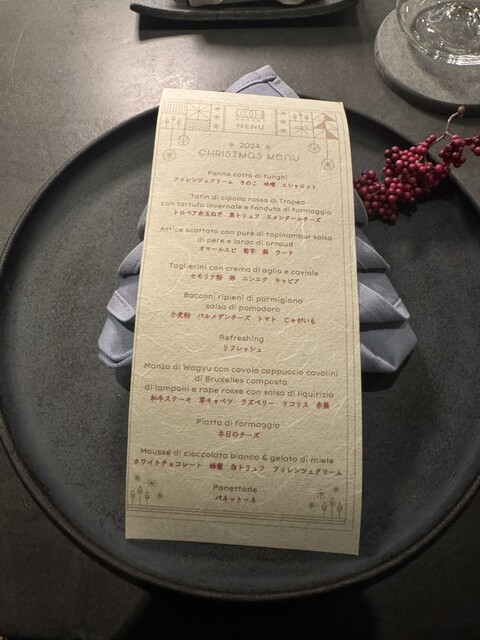 MENU
2024
CHRISTMAS MENU
Panna cotta ai funghi
フィレンツェグリーム きのこ 味噌 エシャロット
Tatin di cipolla rossa di Tropea
con tartufo invernale e fonduta di formaggio
トロペア赤玉ねぎ 黒トリュフ エメンタールチーズ
Astice scottato con purè di topinambur salsa
di pere e lardo di arnaud
オマールエビ 菊芋 梨 ラード
Taglierini con crema di aglio e caviale
セモリナ粉 卵 ニンニク キャビア
Bacconi ripieni di parmigiano
salsa di pomodoro
小麦粉 パルメザンチーズ トマト じゃがいも
Refreshing
リフレッシュ
Manzo di Wagyu con cavolo cappuccio cavolini
di Bruxelles composta
di lamponi e rape rosse con salsa di liquirizia
和牛ステーキ 芽キャベツ ラズベリー リコリス 赤蕪
Piatto di formaggio
本日のチーズ
Mousse di cioccolata bianco & gelato di miele
ホワイトチョコレート 蜂蜜 白トリュフ フィレンツェグリーム
Panettone
パネットーネ